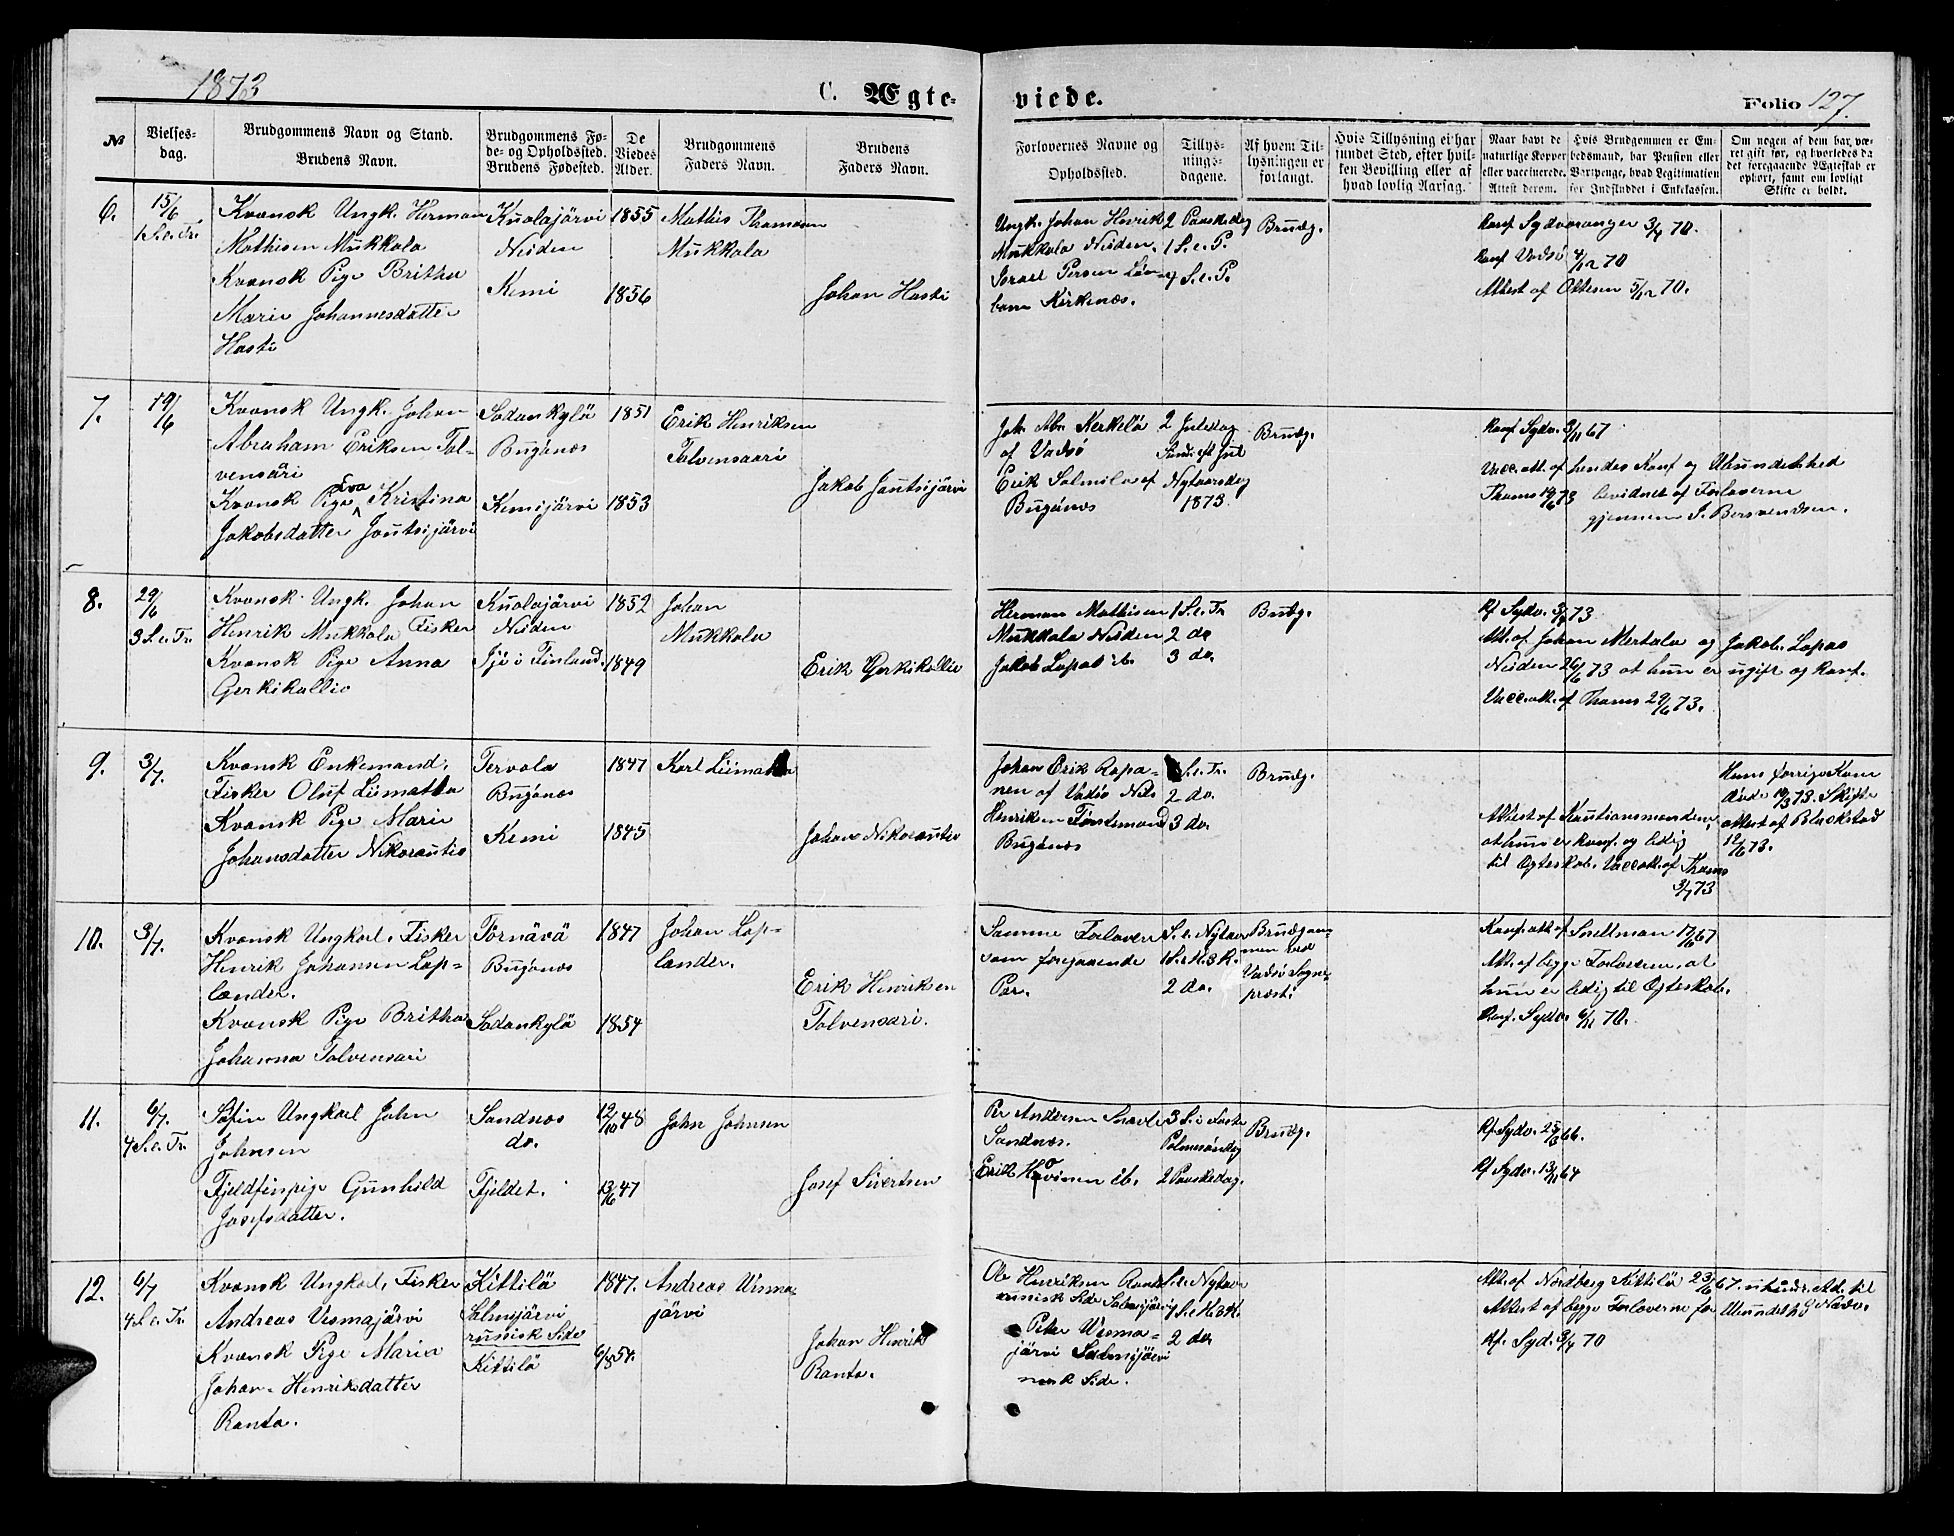 1873
C. Ægte-
viede.
Folio 127.
№
Vielses-
dag.
Brudgommens Navn og Stand.
Brudens Navn.
Brudgommens Fø-
de- og Opholdssted.
Brudens Fødested.
De
Viedes
Alder.
Brudgommens
Faders Navn.
Brudens
Faders Navn.
Forlovernes Navne og
Opholdssted.
Tillys-
nings-
dagene.
Af hvem Til-
lysningen er
forlangt.
Hvis Tillysning ei har
fundet Sted, efter hvil-
ken Bevilling eller af
hvad lovlig Aarsag.
Naar havt de
naturlige Kopper
eller vaccinerede.
Attest derom.
Hvis Brudgommen er Em-
bedsmand, har Pension eller
Vartpenge, hvad Legitimation
for Indskuddet i Enkekassen.
Om nogen af dem har væ-
ret gift før, og hvorledes da
det foregaaende Ægteskab er
ophørt, samt om lovligt
Skifte er holdt.
6.
15/6
1 S. e. Tr.
Kvænsk Ungk. Herman
Mathisen Mukkala
Kvænsk Pige Britha
Marie Johannesdatter
Hasti
Kuolajärvi
Neiden
Kemi
1855
1856
Mathis Thomasen
Mukkala
Johan Hasti
Ungk. Johan Henrik
Mukkala Neiden.
Israel Persen
Kirkenæs.
2 Paaskedag
1 S. e. P.
S. e. P.
Brudg.
Konf. Sydvaranger 3/4 70.
Konf Vadsö 4/12 70
Attest af Ottesen 5/12 70.
7.
19/6
Kvænsk Ungk. Johan
Abraham Eriksen Tol-
vensäri
Kvænsk Pige Eva Kristina
Jakobsdatter Jautsijärvi
Sodankylä
Bugönæs
Kemijärvi
1851
1853
Erik Henriksen
Tolvensaari
Jakob Jautsijärvi
Joh. Abr. Kerkelä
af Vadsö
Erik Salmila af
Bugönæs
2 Juledag
Sönd. eft Jul
Nytaarsdag
1873.
Brudg.
Konf Sydv. 3/11 67
Vacc. att. af hendes Konf og Ubundethed
Thams 19/6 73 bevidnet af Forloverne
gjennem I. Bersvendsen.
8.
29/6
3 S. e. Tr.
Kvænsk Ungk. Johan
Henrik Mukkala Fisker
Kvænsk Pige Anna
Gerkikallio
Kuolajärvi
Neiden
Ijo i Finland.
1852
1849
Johan
Mukkala
Erik Gerkikallio
Herman Mathisen
Mukkala Neiden
Jakob Lapas ib.
1 S. e. Tr
2 do
3 do.
Brudg.
Kf Sydv. 3/4 73
Att. af Johan Mertala og Jakob Lapas
Neiden 26/6 73 at hun er ugift og konf.
Vacc. att. af Thams 29/6 73.
9.
3/7.
Kvænsk Enkemand,
Fisker Oluf Liimatta
Kvænsk Pige Marie
Johansdatter Nikorautio
Tervola
Bugönæs
Kemi
1847
1845
Karl Liimatta
Johan Nikorautio
Johan Erik Rapa-
nen af Vadsö Nils
Henriksen
Bugönæs
S. e. Tr.
2 do.
3 do.
Brudg.
Attest af Kautionsmændene
at hun er konf. og ledig
til Egteskab. Vacc att. af Thams
3/7 73
Hans forrige Kone
döde 19/3 73. Skifte
attest af Blackstad
12/6 73.
10.
3/7.
Kvænsk Ungkarl, Fisker
Henrik Johansen Lap-
lander.
Kvænsk Pige Britha
Johanna Tolvensari
Törnävä
Bugönæs
Sodankylä
1847
1854
Johan Lap-
lander.
Erik Henriksen
Tolvensari.
Samme Forlovere
som foregaaende
Par.
S. e. Nytaar
1 S. e. H 3 K.
2 do.
Brudgom-
men ved
Vadsö Sogne-
præst.
Konf. att. af Snellman 17/6 67
Att. af begge Forloverne, at
hun er ledig til Egteskab.
Konf. Sydv. 6/11 70.
11.
6/7.
4 S. e. Tr.
Söfin Ungkarl John
Johnsen
Fjeldfinpige Gunhild
Josefsdatter.
Sandnæs
do.
Fjeldet.
12/10 48
13/6 47
John Johnsen
Josef Sivertsen
Per Andersen
Sandnæs.
Erik ib.
3 S. i Faste
Palmesöndag
2 Paaskedag.
Brudg.
Kf. Sydv. 25/3 66.
Kf Sydv. 13/11 64
12.
6/7
4 S. e. Tr
Kvænsk Ungkarl, Fisker
Andreas Vismajärvi
Kvænsk Pige Maria
Johan-Henriksdatter
Ranta.
Kittilä
Salmijärvi
russisk Side
Kittilä
1847.
6/8 54.
Andreas Visma-
järvi
Johan Henrik
Ranta.
Ole Henriksen Ranta
russisk Side Salmijärvi
Peter Visma-
järvi Salmijärvi
norsk Side.
S. e. Nytaar
1 S. e. H 3 K.
2 do.
Att. af Nordberg Kittilä 23/6 67.
Attest af begge Forloverne for Ubundethed
Kf. Syd. 3/4 70